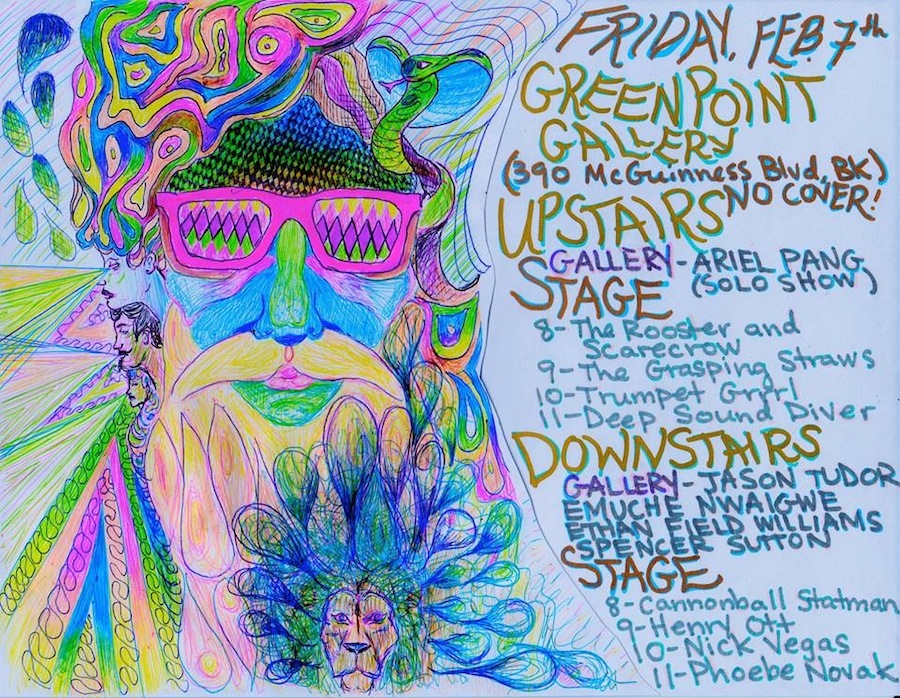 FRIDAY, FEB. 7th
GREENPOINT
GALLERY
(390 McGuinness Blvd, BK)
NO COVER!
UPSTAIRS
GALLERY - ARIEL PANG
(SOLO SHOW)
STAGE
8 - The Rooster and
Scarecrow
9 - The Grasping Straws
10 - Trumpet Grrrl
11 - Deep Sound Diver
DOWNSTAIRS
GALLERY - JASON TUDOR
EMUCHE NWAIGWE
ETHAN FIELD WILLIAMS
SPENCER SUTTON
STAGE
8 - Cannonball Statman
9 - Henry Ott
10 - Nick Vegas
11 - Phoebe Novak